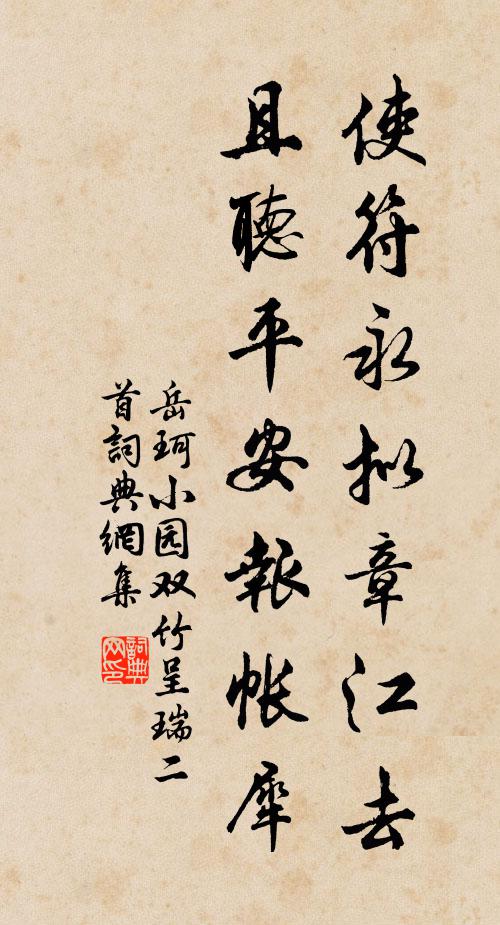 使符永拟章江去
且聽平安報帐犀
岳珂小园双竹呈瑞二
首詞典網集
詞典网印